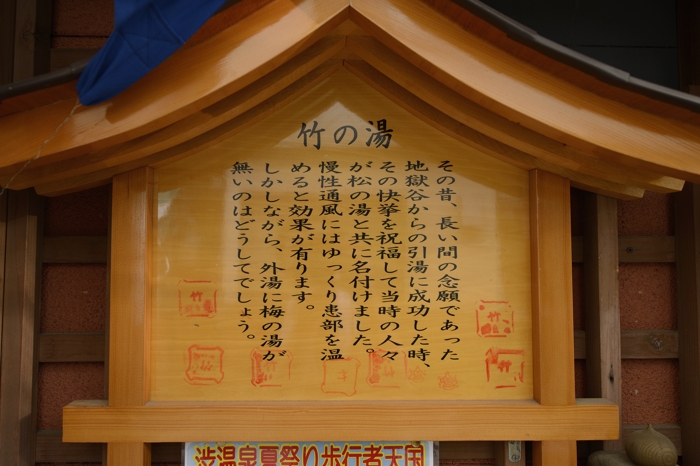 竹の湯
その昔、長い間の念願であった
地獄谷からの引湯に成功した時、
その快挙を祝福して当時の人々
が松の湯と共に名付けました。
慢性通風にはゆっくり患部を温
めると効果が有ります。
しかしながら、外湯に梅の湯が
無いのはどうしてでしょう。
竹
竹
渋温泉夏祭り歩行者天国